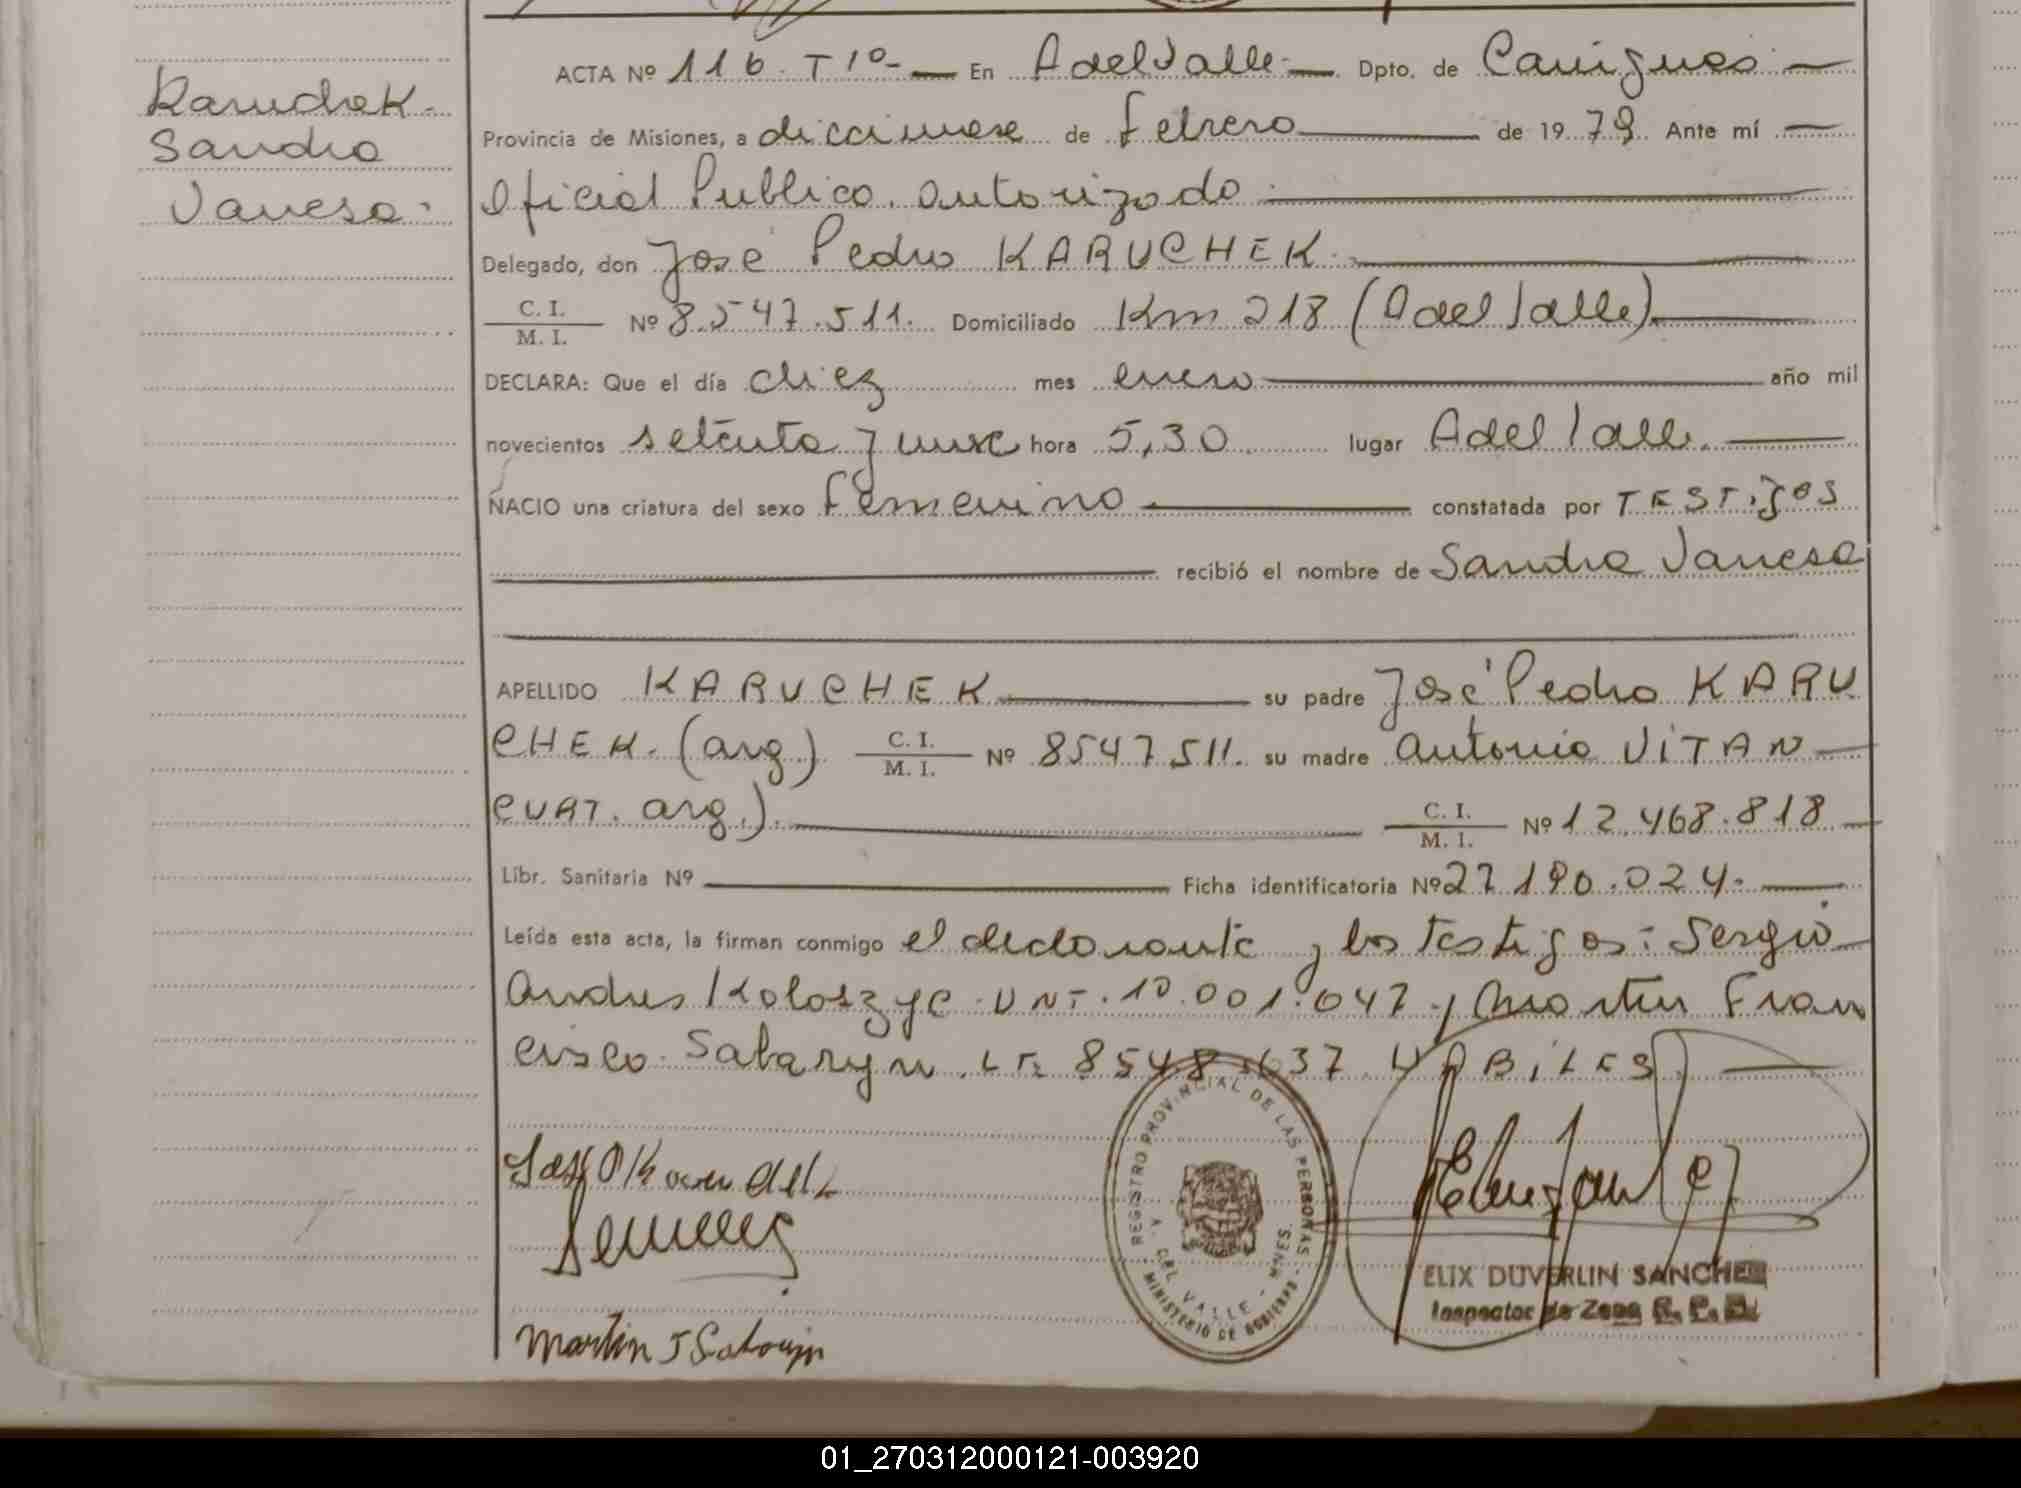 Karuchek
Sandra
Vanesa.
ACTA Nº 116. Tº 1º- En A del Valle- Dpto. de Cainguas
Provincia de Misiones, a diecinueve de Febrero de 1979 Ante mí
Oficial Publico autorizado
Delegado, don José Pedro KARUCHEK.
C. I.
M. I. Nº 8.547.511. Domiciliado Km 218 (A del Valle).
DECLARA: Que el día diez mes enero año mil
novecientos setenta y nueve hora 5,30 lugar A del Valle.
NACIO una criatura del sexo Femenino constatada por TESTigos
recibió el nombre de Sandra Vanesa
APELLIDO KARUCHEK su padre José Pedro KARU
CHEK. (arg.) C. I.
M. I. Nº 8547511. su madre Antonia VITAN
arg.). C. I.
M. I. Nº 12.468.818
Libr. Sanitaria Nº Ficha identificatoria Nº 27.190.024.
Leída esta acta, la firman conmigo el declarante y los testigos: Sergio
Andres 10.001.047 y Martin Fran
cisco Sabaryn. LE. 8548.637. HABILES
REGISTRO PROVINCIAL DE LAS PERSONAS
A. DEL VALLE - MNES.
MINISTERIO DE GOBIERNO
ELIX DUVERLIN SANCHEZ
Inspector de Zona R. P. P.
Martin F Sabaryn
01_270312000121-003920